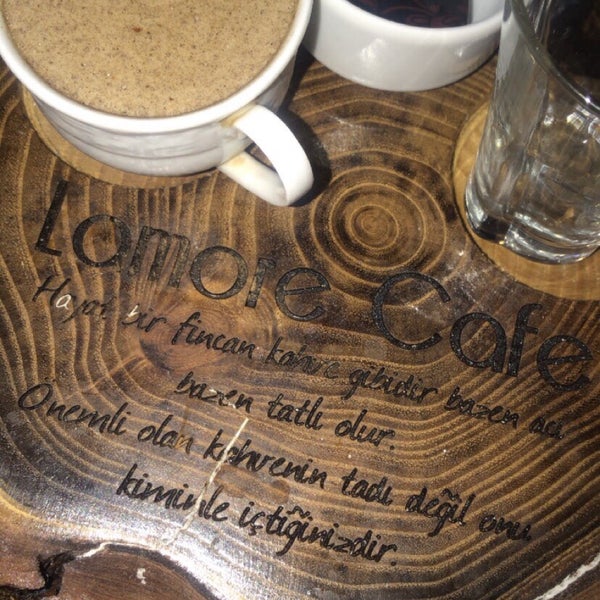 Lamore Cafe
Hayat bir fincan kahve gibidir bazen acı
bazen tatlı olur.
Önemli olan kahvenin tadı değil onu
kiminle içtiğinizdir.